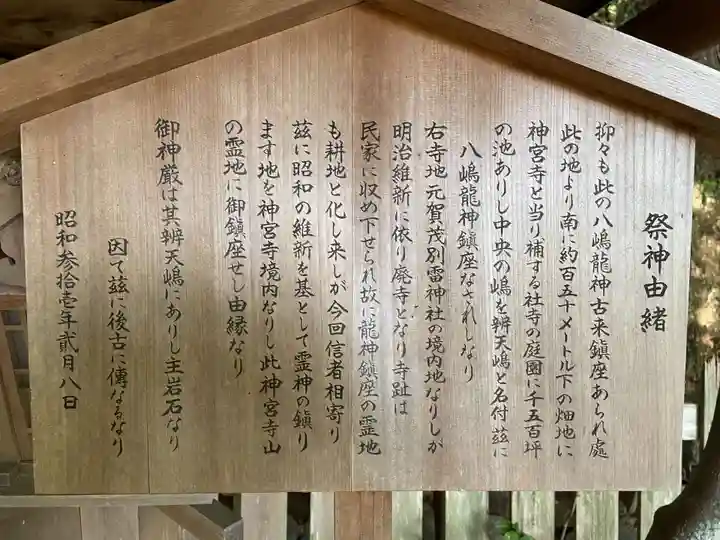 祭神由緒
抑々も此の八嶋龍神古来鎮座あられ處
此の地より南に約百五十メートル下の畑地に
神宮寺と当り補する社寺の庭園に千五百坪
の池ありし中央の嶋を辨天嶋と名付茲に
八嶋龍神鎮座なされしなり
右寺地元賀茂別雷神社の境内地なりしが
明治維新に依り廃寺となり寺趾は
民家に収め下せられ故に龍神鎮座の霊地
も耕地と化し来しが今回信者相寄り
茲に昭和の維新を基として霊神の鎮り
ます地を神宮寺境内なりし此神宮寺山
の霊地に御鎮座せし由縁なり
御神厳は其辨天嶋にありし主岩石なり
因て茲に後古に傳なるなり
昭和参拾壱年貳月八日